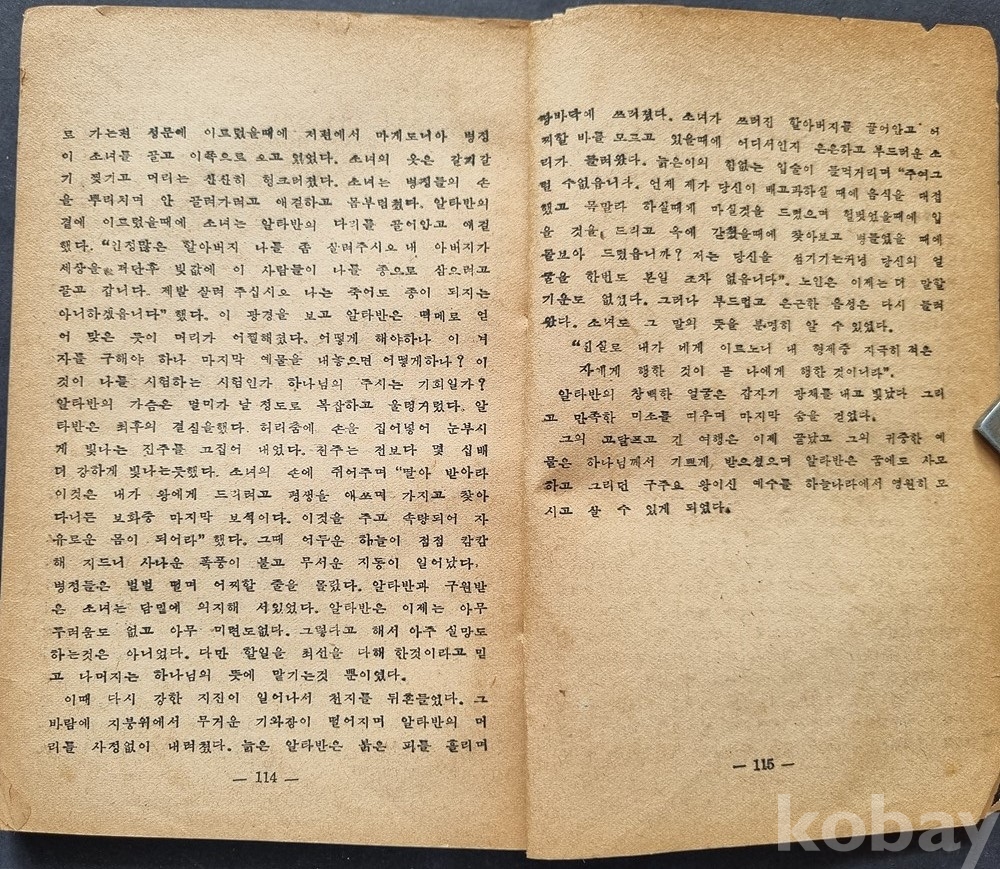 로 가는편 성문에 이르렀을때에 저편에서 마게도니아 병정
이 소녀를 끌고 이쪽으로 오고 있었다. 소녀의 옷은 갈기갈
기 찢기고 머리는 산산히 헝크러졌다. 소녀는 병정들의 손
을 뿌리치며 안 끌려가려고 애걸하고 몸부림쳤다. 알타반의
곁에 이르렀을때에 소녀는 알타반의 다리를 끌어안고 애걸
했다. “인정많은 할아버지 나를 좀 살려주시오 내 아버지가
세상을 떠난후 빚값에 이 사람들이 나를 종으로 삼으려고
끌고 갑니다. 제발 살려 주십시오 나는 죽어도 종이 되지는
아니하겠읍니다” 했다. 이 광경을 보고 알타반은 떡메로 얻
어 맞은 듯이 머리가 어찔해졌다. 어떻게 해야하나 이 겨
자를 구해야 하나 마지막 예물을 내놓으면 어떻게하나? 이
것이 나를 시험하는 시험인가 하나님의 주시는 기회일가?
알타반의 가슴은 멀미가 날 정도로 복잡하고 울렁거렸다. 알
타반은 최후의 결심을했다. 허리춤에 손을 집어넣어 눈부시
게 빛나는 진주를 고집어 내었다. 진주는 전보다 몇 십배
더 강하게 빛나는듯했다. 소녀의 손에 쥐어주며 “딸아 받아라
이것은 내가 왕에게 드리려고 평생을 애쓰며 가지고 찾아
다너든 보화중 마지막 보석이다. 이것을 주고 속량되어 자
유로운 몸이 되어라” 했다. 그때 어두운 하늘이 점점 캄캄
해 지드니 사나운 폭풍이 불고 무서운 지동이 일어났다.
병정들은 벌벌 떨며 어찌할 줄을 몰랐다. 알타반과 구원반
은 소녀는 담밑에 의지해 서있었다. 알타반은 이제는 아무
두려움도 없고 아무 미련도없다. 그렇다고 해서 아주 실망도
하는것은 아니었다. 다만 할일을 최선을 다해 한것이라고 믿
고 나머지는 하나님의 뜻에 맡기는것 뿐이였다.
이때 다시 강한 지진이 일어나서 천지를 뒤흔들었다. 그
바람에 지붕위에서 무거운 기와장이 떨어지며 알타반의 머
리를 사정없이 내려쳤다. 늙은 알타반은 붉은 피를 흘리며
— 114 —
땅바닥에 쓰러졌다. 소녀가 쓰러진 할아버지를 끌어안고 어
찌할 바를 모르고 있을때에 어디서인지 은은하고 부드러운 소
리가 들려왔다. 늙은이의 힘없는 입술이 들먹거리며 “주여그
럴 수없읍니다. 언제 제가 당신이 배고파하실 때에 음식을 대접
했고 목말라 하실때게 마실것을 드렸으며 헐벗었을때에 입
을 것을 드리고 옥에 갇혔을때에 찾아보고 병들었을 때에
돌보아 드렸읍니까? 저는 당신을 섬기기는커녕 당신의 얼
굴을 한번도 본일 조차 없읍니다”. 노인은 이제는 더 말할
기운도 없었다. 그러나 부드럽고 은근한 음성은 다시 들려
왔다. 소녀도 그 말의 뜻을 분명히 알 수 있었다.
“진실로 내가 네게 이르노니 내 형제중 지극히 적은
자에게 행한 것이 곧 나에게 행한 것이니라”.
알타반의 창백한 얼굴은 갑자기 광채를 내고 빛났다 그러
고 만족한 미소를 띠우며 마지막 숨을 걷었다.
그의 고달프고 긴 여행은 이제 끝났고 그의 귀중한 예
물은 하나님께서 기쁘게 받으셨으며 알타반은 꿈에도 사모
하고 그리던 구주요 왕이신 예수를 하늘나라에서 영원히 모
시고 살 수 있게 되었다.
— 115 —
kobay